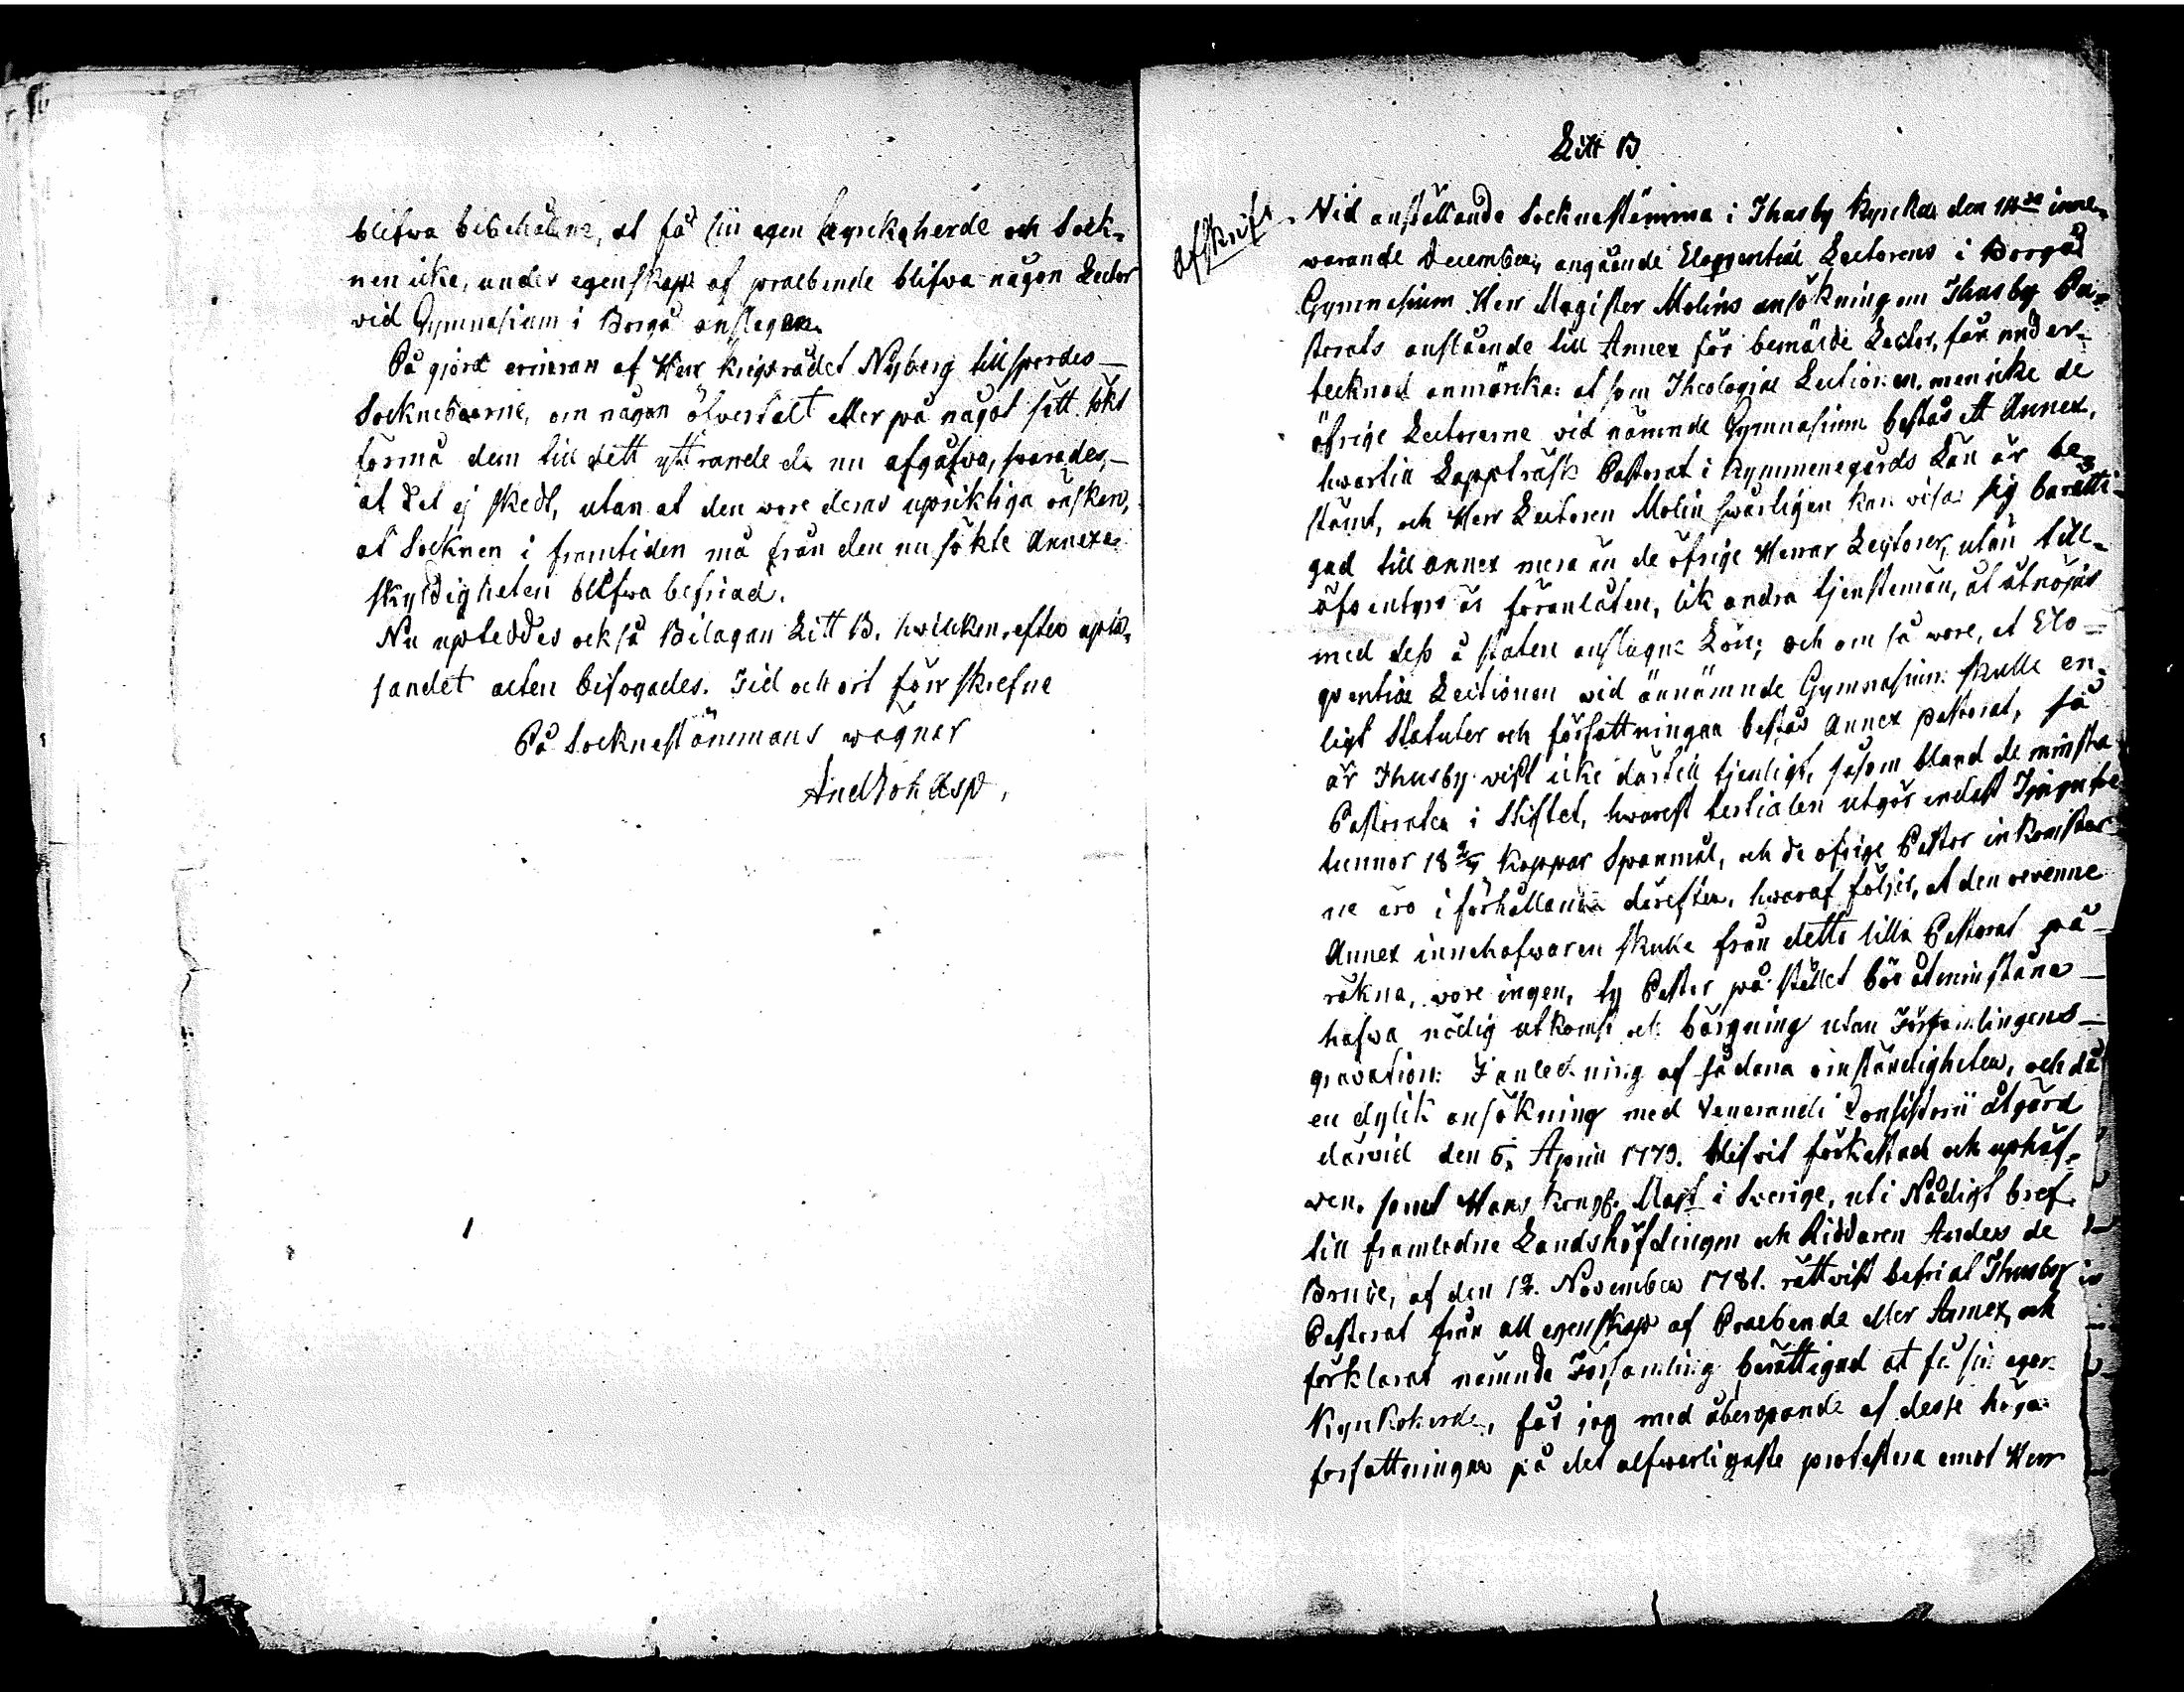 blifwa bibehållne, at få sin egen kyrckoherde och Sock-
nen icke, under egenskap af praebende blifwa någon Lector
vid Gymnasium i Borgå anslagen.
På gjord erinran af Herr Krigsrådet Nyberg tillspordes
Sockneboerne, om någon öfvertalt eller på något sätt sökt
förmå dem till dett yttrande de nu afgåfwo, svarades,
at det ej skedt, utan at den vore deras upriktiga önskan,
at Socknen i framtiden må från den nu sökte Annexe
skyldigheten blifwa befriad.
Nu upteddes också Bilagan Litt B. hvilcken, efter uplä-
sandet acten bifogades. Tid och ort förr skrefne
På Socknestämmans wägnar
And Joh Asp.
Litt B
Afskrift.
Vid anställande Socknestämma i Thusby Kyrcka den 14de inne-
warande December, angående Eloquentiae Lectorens i Borgå
Gymnasium Herr Magister Molins ansökning om Thusby Pa-
storats anslående till Annex för bemälde Lector, får under-
tecknad anmärcka: at som Theologiae Lectionen, men icke de
öfrige Lectorerne vid nämnde Gymnasium bestås ett Annex,
hwartill Lappträsk Pastorat i Kymmenegårds Län är be-
stämt, och Herr Lectoren Molin swårligen kan visa sig berätti-
gad till annex mera än de öfrige Herrar Lectorer, utan till-
äfventyrs är föranlåten, lik andra tjenstemän, at åtnöjas
med dess å staten anslagne Lön; och om så wore, at Elo-
quentiae Lectionen vid ännämnde Gymnasium skulle en-
ligt Statuter och författningar bestås Annex pastorat, så
är Thusby vist icke dartill tjenligt, såsom bland de minsta
Pastorater i Stiftet, hwarest tertialen utgör endast Tjugu tre
tunnor 18 2/5 Kappar Spanmål, och de öfrige Pastor inkomster
ne äro i förhållande därefter, hwaraf följer, at den revenne
Annex innehafwaren skulle från detta lilla Pastorat på-
räkna, wore ingen, ty Pastor på stället bör åtminstone
hafwa nödig utkomst och bärgning utan Församlingens
gravation: I anledning af sådana omständigheter, och då
en dylik ansökning med Venerandi Consistorii åtgärd
därvid den 6. April 1779. blifvit förkastad och uphäf-
ven, samt Hans Kongl. Majt i Sverige, uti Nådigt bref
till framledne Landshöfdingen och Riddaren Anders de
Bruce, af den 12. November 1781. rättvist befriat Thusby
Pastorat från all egenskap af Praebende eller Annex, och
förklarat nämnde Församling berättigad at få sin egen
Kyrkoherde, får jag med åberopande af desse höga
författningar på det alfwarligaste protestera emot Herr